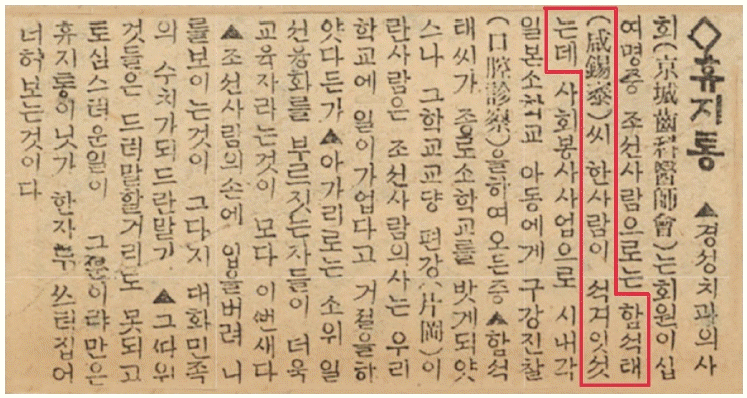 ◇휴지통 ▲경성치과의사
회(京城齒科醫師會)는회원이십
여명중 조선사람으로는 함석태
(咸錫泰)씨 한사람이 석겨잇섯
는데 사회봉사사업으로 시내각
일본소학교 아동에게 구강진찰
(口腔診察)을하여오든중▲함석
태씨가 종로소학교를 맛게되얏
스나 그학교교댱 편강(片岡)이
란사람은 조선사람의사는 우리
학교에 일이가업다고 거절을하
얏다든가▲아가리로는 소위 일
선융화를 부르짓는자들이 더욱
교육자라는것이 모다 이번새다
▲조선사람의손에 입을버려 니
를보이는것이 그다지 대화민족
의 수치가되드란말가 ▲그ᄯᅡ위
것들은 드러말할거리도 못되고
토심스러운일이 그ᄲᅮᆫ이랴만은
휴지통이닛가 한자루 쓰러집어
너허보는것이다